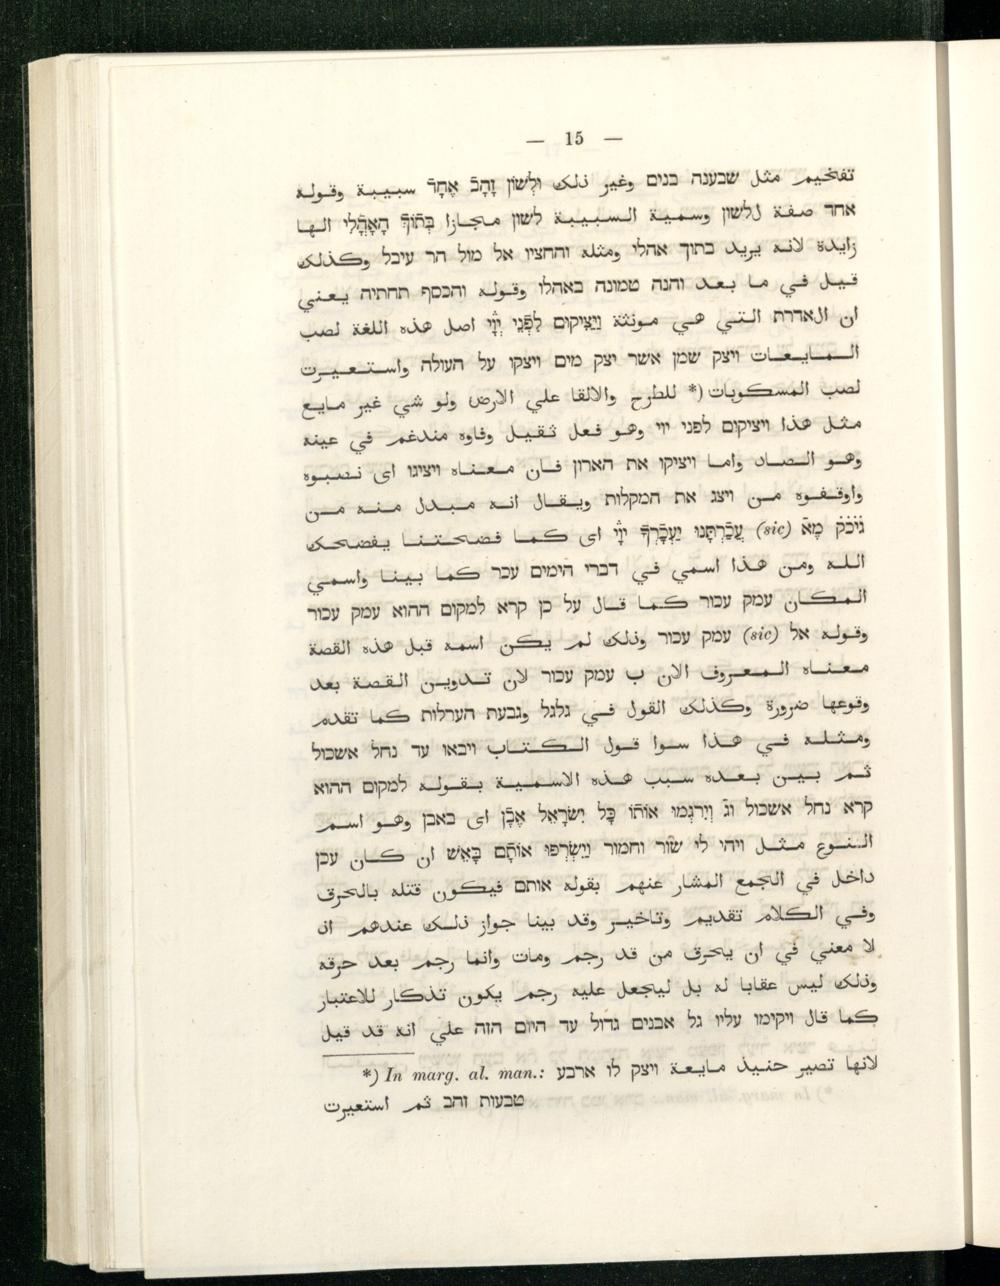 — 15 —
تفخيم مثل שבענה בנים وغير ذلك וּלְשׁוֹן זָהָב אֶחָד سبيبة وقوله
אחד صفة للשון وسمية السبيبة לשון مجازا בְּתוֹךְ הָאָהֳלִי الها
زايدة لانه يريد בתוך אהלי ومثله והחציו אל מול הר עיבל وكذلك
قيل في ما بعد והנה טמונה באהלו وقوله והכסף תחתיה يعني
ان الאדרת التي هي مونثة וַיַּצִיקוּם לִפְנֵי יְ֗יָ֗ اصل هذه اللغة لصب
المايعات ויצק שמן אשר יצק מים ויצקו על העולה واستعيرت
لصب المسكوبات (* للطرح والالقا علي الارض ولو شي غير مايع
مثل هذا ויציקום לפני ייי وهو فعل ثقيل وفاوه مندغم في عينه
وهو الصاد واما ויציקו את הארון فان معناه ויציגו اى نصبوه
واوقفوه من ויצג את המקלות ويقال انه مبدل منه من
גיכק מֶא (sic) עֲכַרְתָּנוּ יַעְכָּרְךָ יְיָ֗ اى كما فضحتنا يفضحك
الله ومن هذا اسمي في דברי הימים עכר كما بينا واسمي
المكان עמק עכור كما قال על כן קרא למקום ההוא עמק עכור
وقوله אל (sic) עמק עכור وذلك لم يكن اسمه قبل هذه القصة
معناه المعروف الان ب עמק עכור لان تدوين القصة بعد
وقوعها ضرورة وكذلك القول في גלגל وגבעת הערלות كما تقدم
ومثله في هذا سوا قول الكتاب ויבאו עד נחל אשכול
ثم بين بعده سبب هذه الاسمية بقوله למקום ההוא
קרא נחל אשכול וג֗ וַיִּרְגְמוּ אוֹתוֹ כָּל יִשְׂרָאֵל אֶבֶן اى באבן وهو اسم
النوع مثل ויהי לי שור וחמור וַיִּשְׂרְפוּ אוֹתָם בָּאֵשׁ ان كان עכן
داخل في الجمع المشار عنهم بقوله אותם فيكون قتله بالحرق
وفي الكلام تقديم وتاخير وقد بينا جواز ذلك عندهم اذ
لا معني في ان يحرق من قد رجم ومات وانما رجم بعد حرقه
وذلك ليس عقابا له بل ليجعل عليه رجم يكون تذكار للاعتبار
كما قال ויקימו עליו גל אבנים גדול עד היום הזה علي انه قد قيل
*) In marg. al. man.: لانها تصير حنيذ مايعة ויצק לו ארבע
טבעות זהב ثم استعيرت